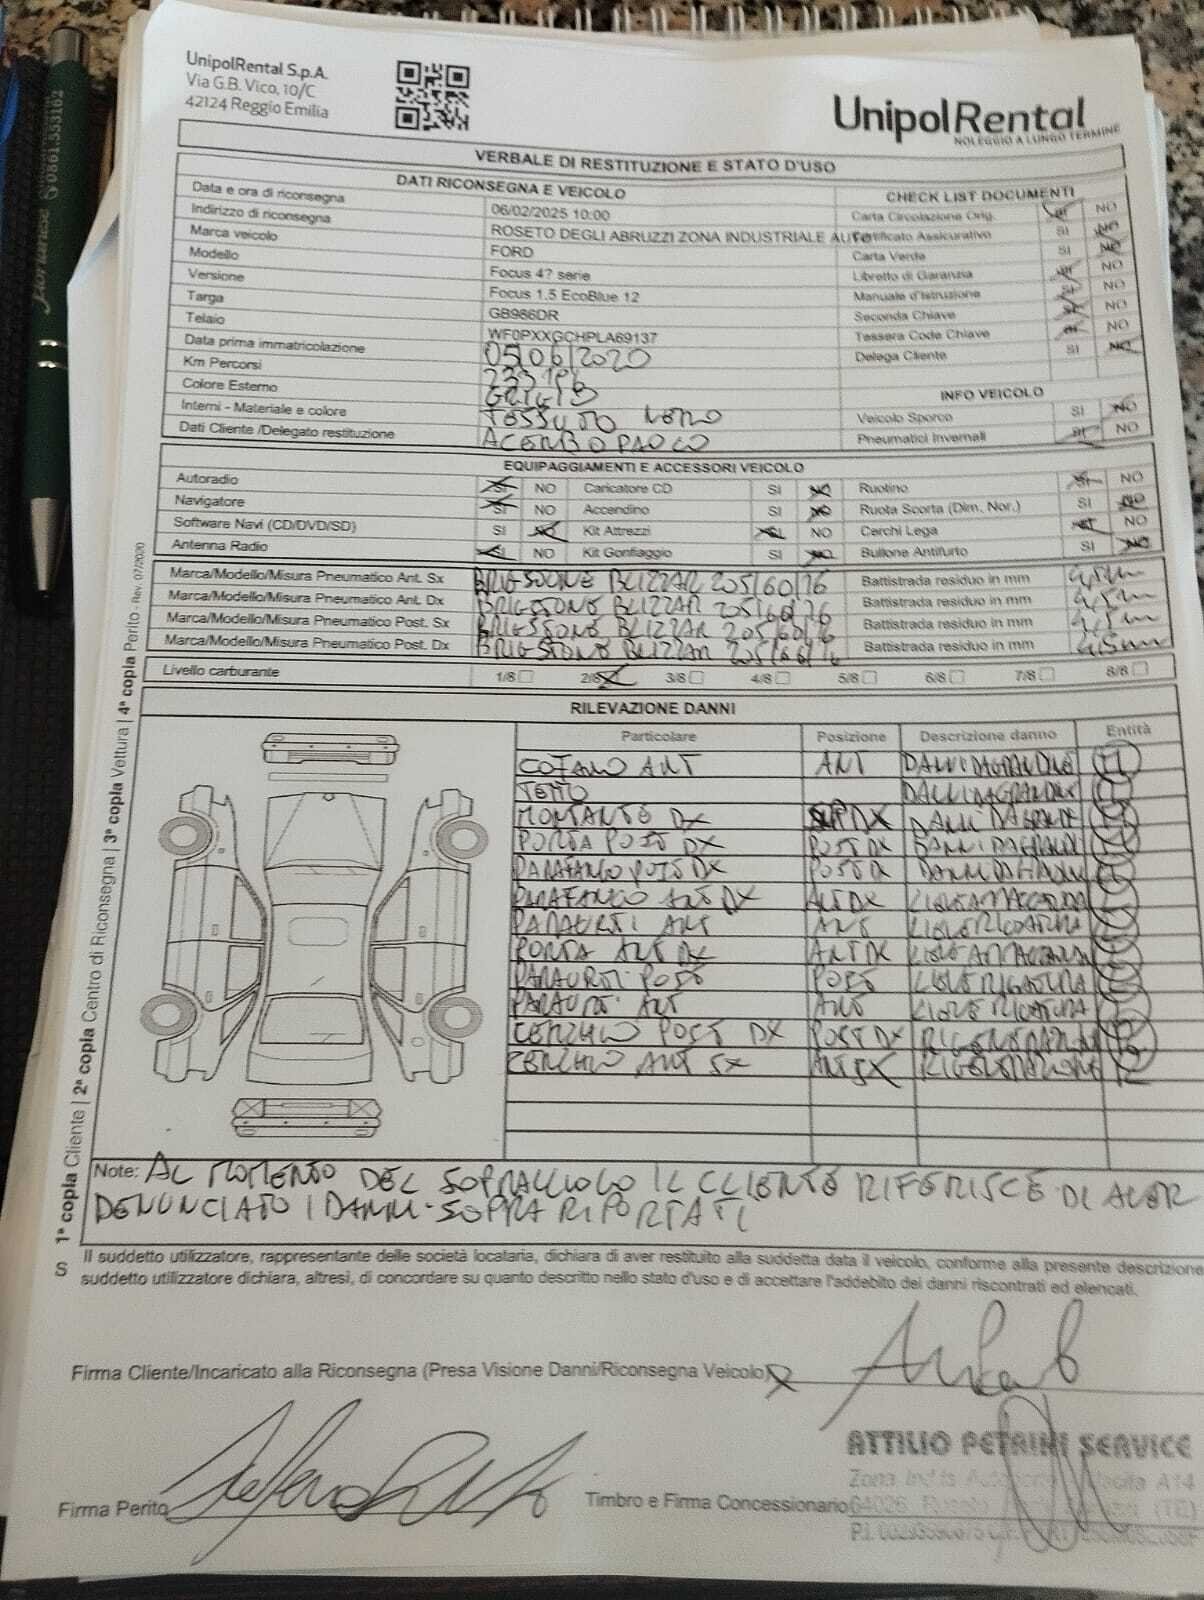 UnipolRental S.p.A.
Via G.B. Vico, 10/C
42124 Reggio Emilia
UnipolRental
NOLEGGIO A LUNGO TERMINE
VERBALE DI RESTITUZIONE E STATO D'USO
DATI RICONSEGNA E VEICOLO CHECK LIST DOCUMENTI
Data e ora di riconsegna 06/02/2025 10:00 Carta Circolazione Orig. SI NO
Indirizzo di riconsegna ROSETO DEGLI ABRUZZI ZONA INDUSTRIALE AUTO Certificato Assicurativo SI NO
Marca veicolo FORD Carta Verde SI NO
Modello Focus 4? serie Libretto di Garanzia SI NO
Versione Focus 1.5 EcoBlue 12 Manuale d'Istruzione SI NO
Targa GB986DR Seconda Chiave SI NO
Telaio WF0PXXGCHPLA69137 Tessera Code Chiave SI NO
Data prima immatricolazione 05/06/2020 Delega Cliente SI NO
Km Percorsi
Colore Esterno GRIGIO INFO VEICOLO
Interni - Materiale e colore TESSUTO NERO Veicolo Sporco SI NO
Dati Cliente /Delegato restituzione ACERBO PAOLO Pneumatici Invernali SI NO
EQUIPAGGIAMENTI E ACCESSORI VEICOLO
Autoradio SI NO Caricatore CD SI NO Ruotino SI NO
Navigatore SI NO Accendino SI NO Ruota Scorta (Dim. Nor.) SI NO
Software Navi (CD/DVD/SD) SI NO Kit Attrezzi SI NO Cerchi Lega SI NO
Antenna Radio SI NO Kit Gonfiaggio SI NO Bullone Antifurto SI NO
Marca/Modello/Misura Pneumatico Ant. Sx BRIGSTONE BLIZZAR 205/60/16 Battistrada residuo in mm 4,5mm
Marca/Modello/Misura Pneumatico Ant. Dx BRIGSTONE BLIZZAR 205/60/16 Battistrada residuo in mm 4,5mm
Marca/Modello/Misura Pneumatico Post. Sx BRIGSTONE BLIZZAR 205/60/16 Battistrada residuo in mm 4,5mm
Marca/Modello/Misura Pneumatico Post. Dx BRIGSTONE BLIZZAR 205/60/16 Battistrada residuo in mm 4,5mm
Livello carburante 1/8 2/8 3/8 4/8 5/8 6/8 7/8 8/8
RILEVAZIONE DANNI
Particolare Posizione Descrizione danno Entità
COFANO ANT ANT DANNI DA GRANDINE
TETTO DANNI DA GRANDINE
MONTANTE DX DX DANNI DA GRANDINE
PORTA POST DX POST DX DANNI DA GRANDINE
PARAFANGO POST DX POST DX DANNI DA GRANDINE
PARAFANGO ANT DX ANT DX
PARAURTI ANT ANT LIEVE RIGATURA
PORTA ANT DX ANT DX
PARAURTI POST POST LIEVE RIGATURA
PARAURTI ANT ANT LIEVE RIGATURA
CERCHIO POST DX POST DX RIGENERAZIONE
CERCHIO ANT SX ANT SX RIGENERAZIONE
Note: AL MOMENTO DEL SOPRALLUOGO IL CLIENTE RIFERISCE DI AVER
DENUNCIATO I DANNI SOPRA RIPORTATI
Il suddetto utilizzatore, rappresentante delle società locataria, dichiara di aver restituito alla suddetta data il veicolo, conforme alla presente descrizione
S suddetto utilizzatore dichiara, altresì, di concordare su quanto descritto nello stato d'uso e di accettare l'addebito dei danni riscontrati ed elencati.
Firma Cliente/Incaricato alla Riconsegna (Presa Visione Danni/Riconsegna Veicolo)
Firma Perito
Timbro e Firma Concessionario
ATTILIO PETRINI SERVICE
1ª copia Cliente | 2ª copia Centro di Riconsegna | 3ª copia Vettura | 4ª copia Perito - Rev. 07/2020
0861.553162